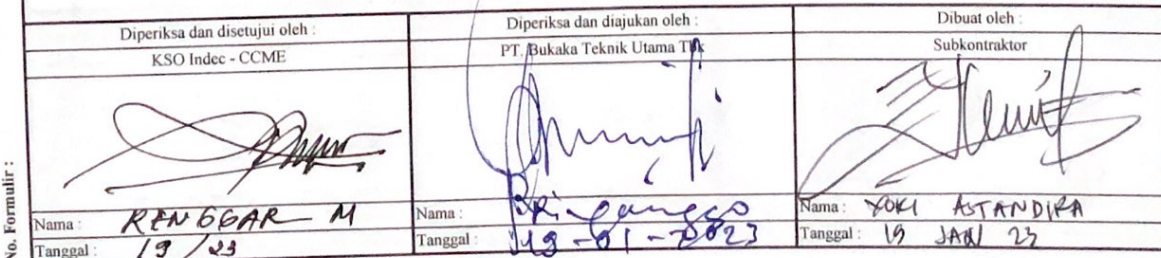 Diperiksa dan disetujui oleh :
Diperiksa dan diajukan oleh :
Dibuat oleh :
KSO Indec - CCME
PT. Bukaka Teknik Utama Tbk
Subkontraktor
No. Formulir :
Nama : RENGGAR M
Nama :
Nama : YOKI ASTANDIRA
Tanggal : 19 / 23
Tanggal : 19 - 01 - 2023
Tanggal : 19 JAN 23